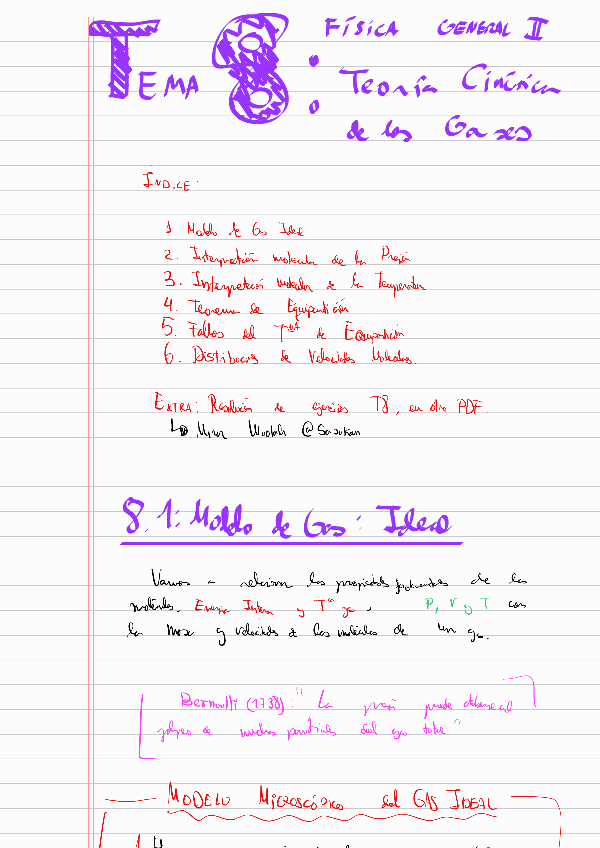 FÍSICA GENERAL II
TEMA 8: Teoría Cinética
de los Gases
ÍNDICE:
1 Modelo de Gas Ideal
2. Interpretación molecular de la Presión
3. Interpretación molecular de la Temperatura
4. Teorema de Equipartición
5. Fallos del T de Equipartición
6. Distribución de Velocidades Moleculares.
EXTRA: Resolución de ejercicios T8, en otro PDF
↳ Mirar Wuolah
8.1: Modelo de Gas: Ideal
Vamos a relacionar las propiedades de las
moléculas, Energía Interna y Tª P, V y T con
la masa y velocidades de las moléculas de un gas.
Bernoulli (1738): "La presión puede
golpeo de muchas partículas del gas sobre"
MODELO MICROSCÓPICO del GAS IDEAL